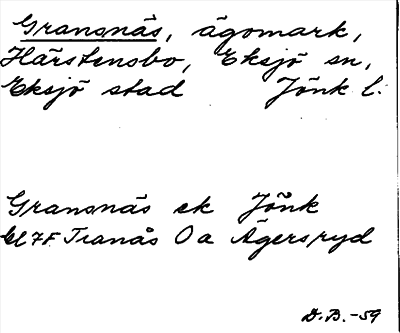 Gransnäs, ägomark,
Härstensbo, Eksjö sn,
Eksjö stad Jönk l.
Gransnäs ek Jönk
7F Tranås 0a Agersryd
D.B.-59